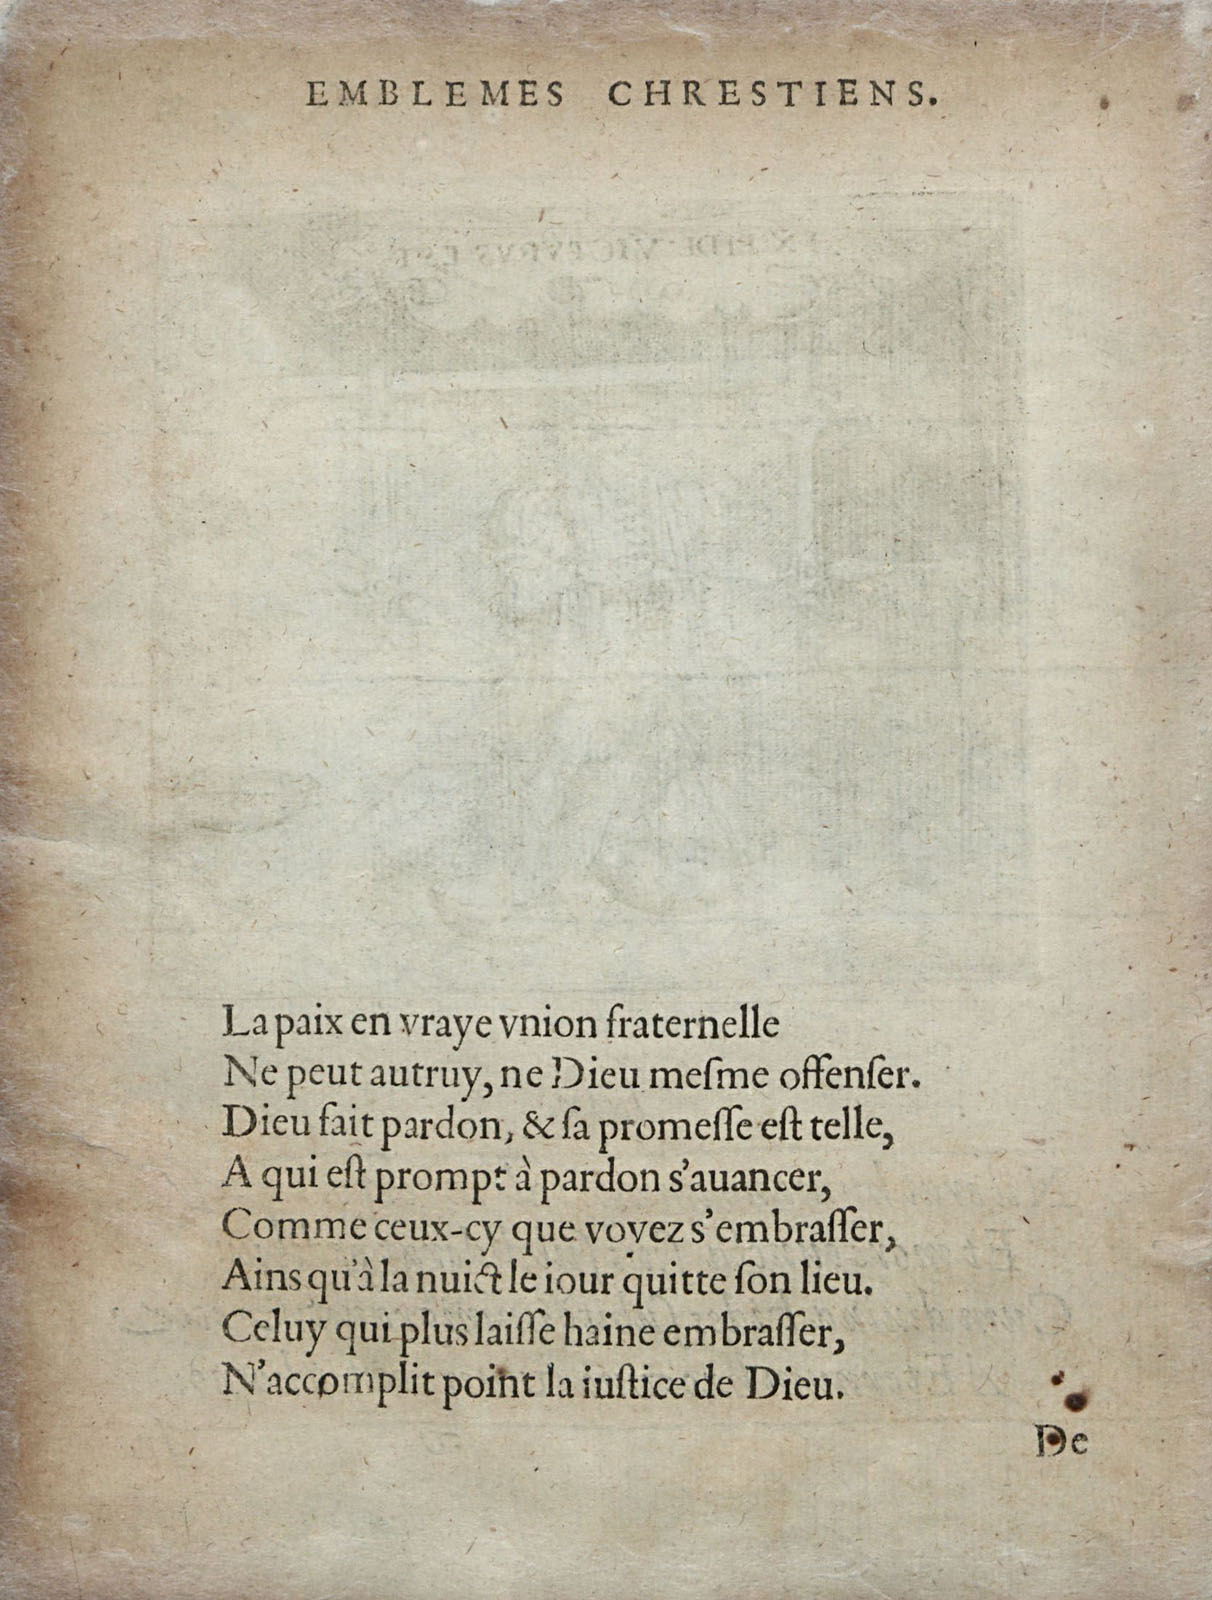 EMBLEMES CHRESTIENS.
La paix en vraye vnion fraternelle
Ne peut autruy, ne Dieu meſme offenſer.
Dieu fait pardon, & ſa promeſſe eſt telle,
A qui eſt prompt à pardon s'auancer,
Comme ceux-cy que voyez s'embraſſer,
Ains qu'à la nuict le iour quitte ſon lieu.
Celuy qui plus laiſſe haine embraſſer,
N'accomplit point la iuſtice de Dieu.
De